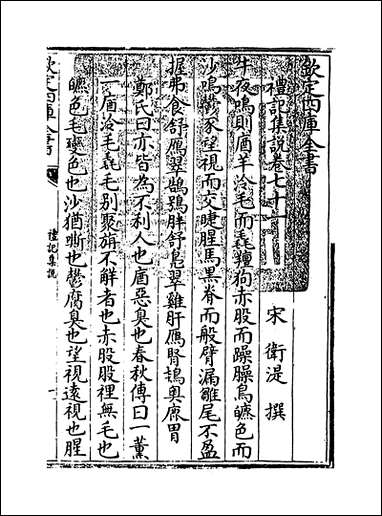 欽定四庫全書
禮記集說卷七十一
宋 衛湜 撰
牛夜鳴則庮羊泠毛而毳羶狗赤股而躁臊鳥皫色而
沙鳴鬱豕望視而交睫腥馬黑脊而般臂漏雛尾不盈
握弗食舒鴈翠鵠鴞胖舒鳧翠雞肝鴈腎鴇奧鹿胃
鄭氏曰亦皆為不利人也庮惡臭也春秋傳曰一薰
一庮泠毛毳毛别聚旃不解者也赤股股裡無毛也
皫色毛變色也沙猶嘶也鬱腐臭也望視逺視也腥
欽定四庫全書
禮記集說
一